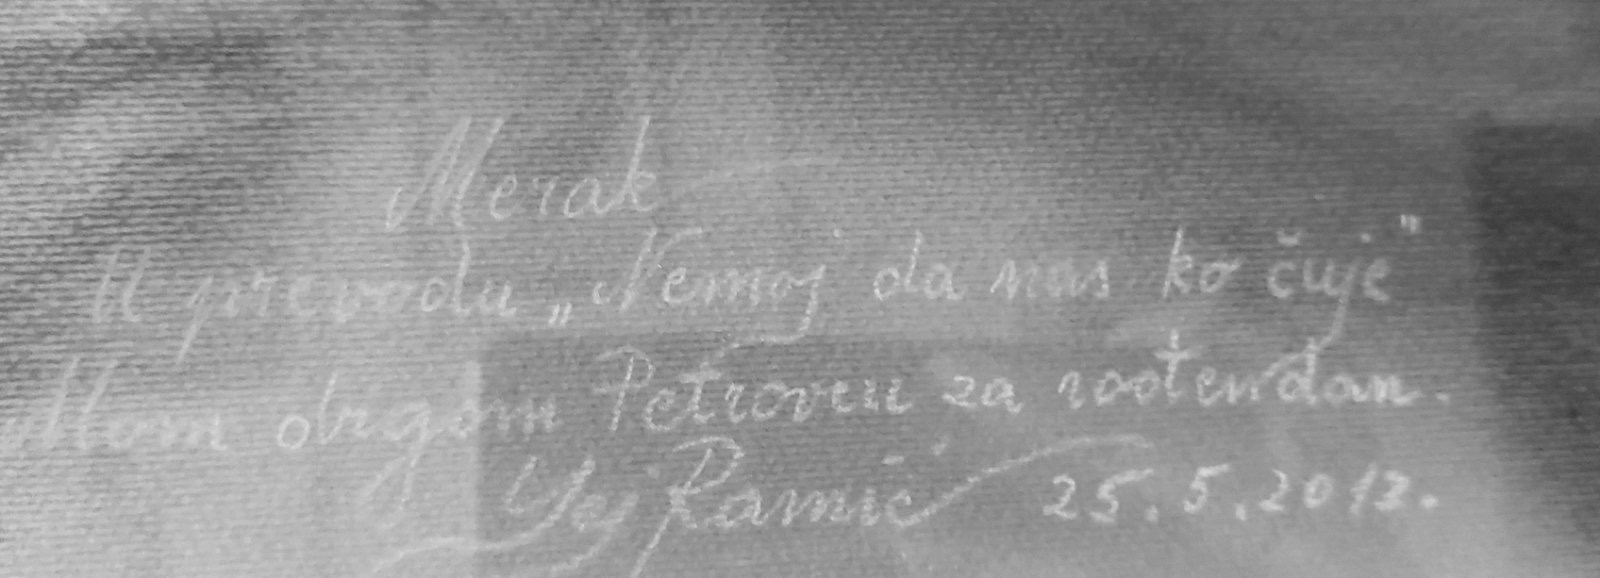 Merak
U prevodu „Nemoj da nas ko čuje"
Mom drgom Petroviu za rođendan.
Ramić 25.5.2012.